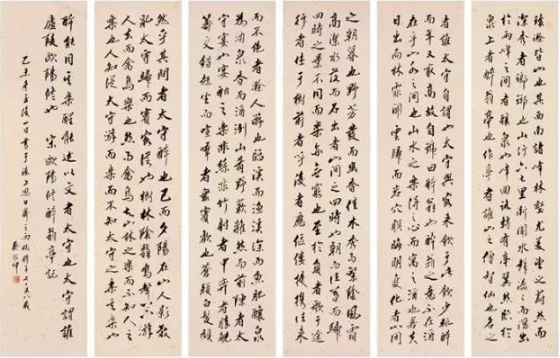 環滁皆山也其西南諸峰林壑尤美望之蔚然而
深秀者瑯琊也山行六七里漸聞水聲潺潺而瀉出
於兩峰之間者釀泉也峰回路轉有亭翼然臨於
泉上者醉翁亭也作亭者誰山之僧智仙也名之
者誰太守自謂也太守與客來飲于此飲少輒醉
而年又最高故自號曰醉翁也醉翁之意不在酒
在乎山水之間也山水之樂得之心而寓之酒也若夫
日出而林霏開雲歸而岩穴暝晦明變化者山間
之朝暮也野芳發而幽香佳木秀而繁陰風霜
高潔水落而石出者山間之四時也朝而往暮而歸
四時之景不同而樂亦無窮也至於負者歌于途
行者休于樹前者呼後者應傴僂提攜往來
而不絕者滁人遊也臨溪而漁溪深而魚肥釀泉
為酒泉香而酒洌山肴野蔌雜然而前陳者太
守宴也宴酣之樂非絲非竹射者中弈者勝觥
籌交錯起坐而喧嘩者眾賓歡也蒼顏白髮頹
然乎其間者太守醉也已而夕陽在山人影散
亂太守歸而賓客從也樹林陰翳鳴聲上下遊
人去而禽鳥樂也然而禽鳥知山林之樂而不知人之
樂人知從太守遊而樂而不知太守之樂其樂也
醉能同其樂醒能述以文者太守也太守謂誰
廬陵歐陽修也 宋歐陽修醉翁亭記
乙未年